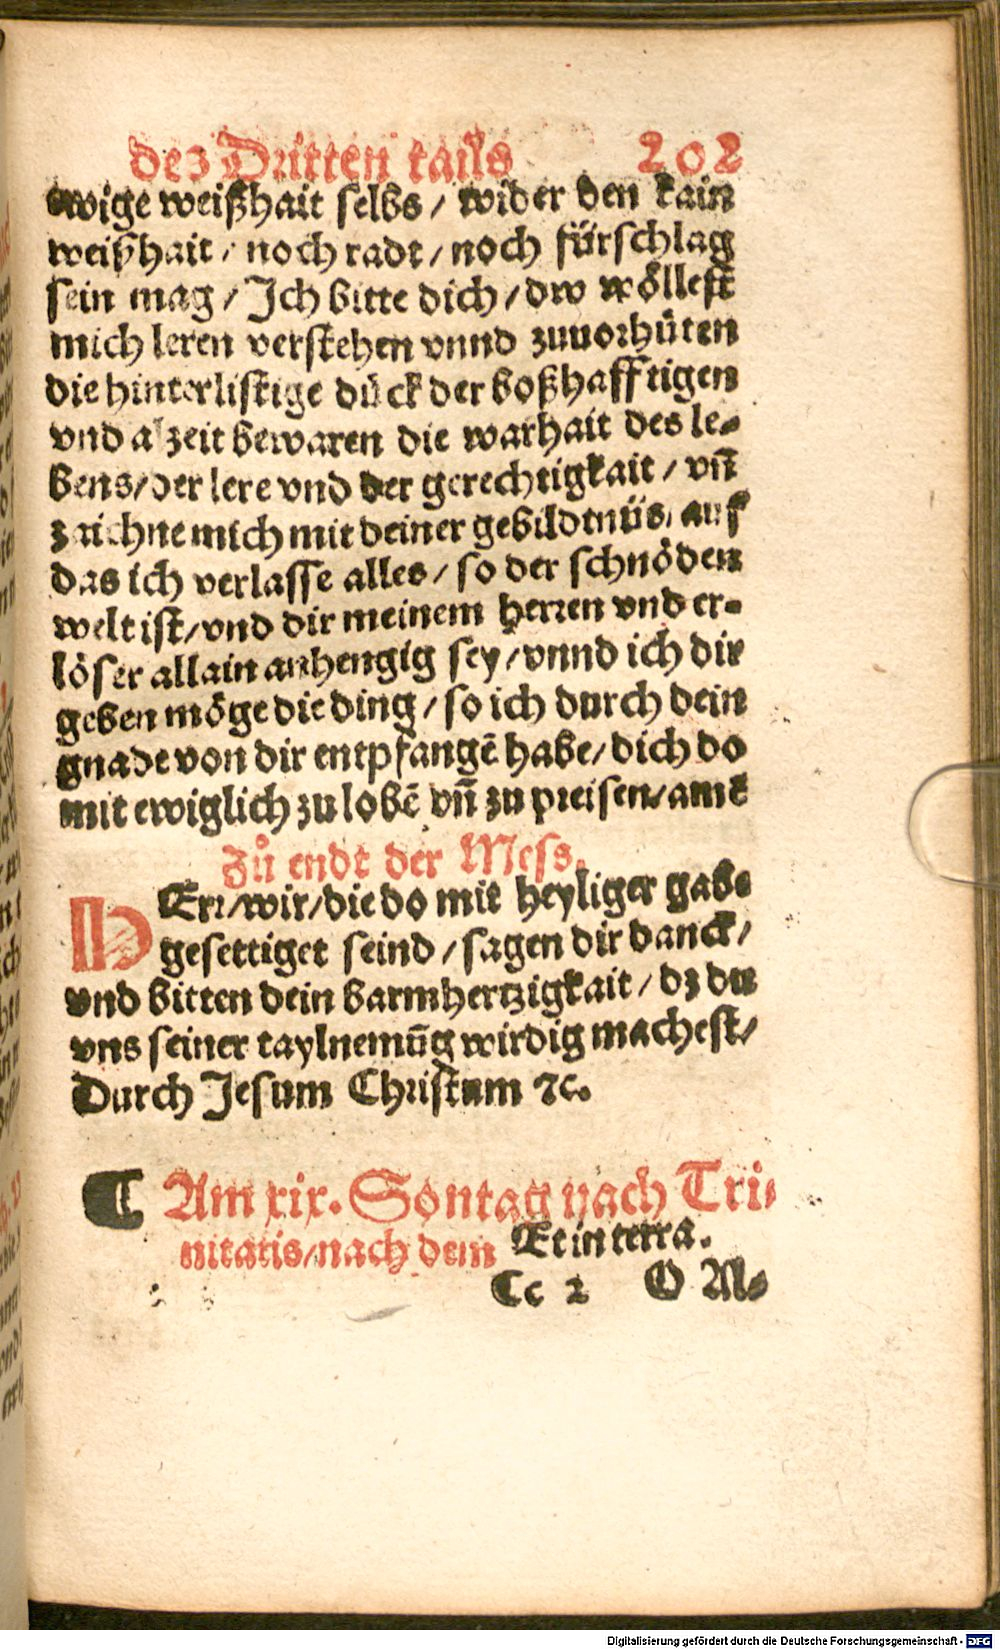 des Dritten tails 202
ewige weißhait selbs / wider den kain
weißhait / noch radt / noch fürschlag
sein mag / Ich bitte dich / dw wöllest
mich leren verstehen vnnd zuuorhüten
die hinterlistige dück der boßhafftigen
vnd alzeit bewaren die warhait des le-
bens / der lere vnd der gerechtigkait / vñ
zaichne mich mit deiner gebildtnüs / auf
das ich verlasse alles / so der schnöden
welt ist / vnd dir meinem herren vnd er-
löser allain anhengig sey / vnnd ich dir
geben möge die ding / so ich durch dein
gnade von dir entpfangē habe / dich do
mit ewiglich zu lobē vñ zu preisen / amē
Zů endt der Mess.
HErr / wir / die do mit heyliger gabe
gesettiget seind / sagen dir danck /
vnd bitten dein barmhertzigkait / dz du
vns seiner taylnemūg wirdig machest /
Durch Jesum Christum ⁊c.
¶ Am xix. Sontag nach Tri-
nitatis / nach dem Et in terra.
Cc 2 O Al-
Digitalisierung gefördert durch die Deutsche Forschungsgemeinschaft - DFG